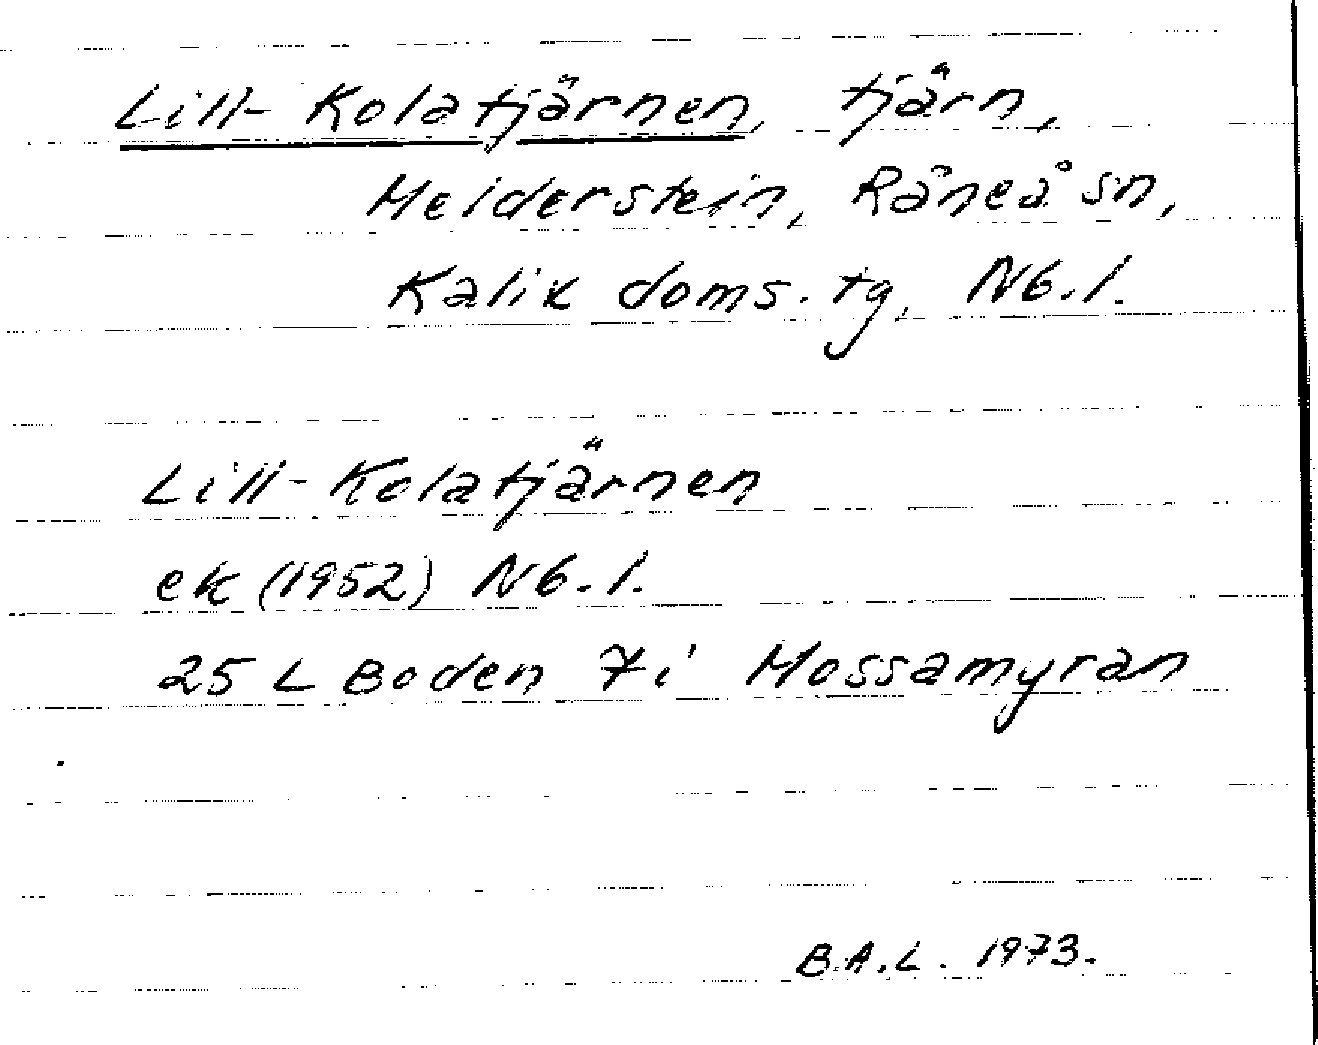 Lill-Kolatjärnen, tjärn,
Melderstein, Råneå sn,
Kalix doms. tg, Nb. l.
Lill-Kolatjärnen
ek (1952) Nb. l.
25 L Boden 7i Mossamyran
B.A.L. 1973.